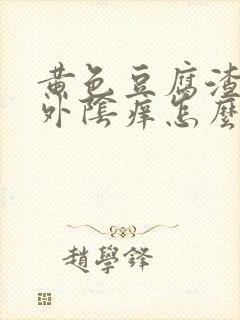 黄色豆腐渣
外陰痒怎麼
趙學鋒